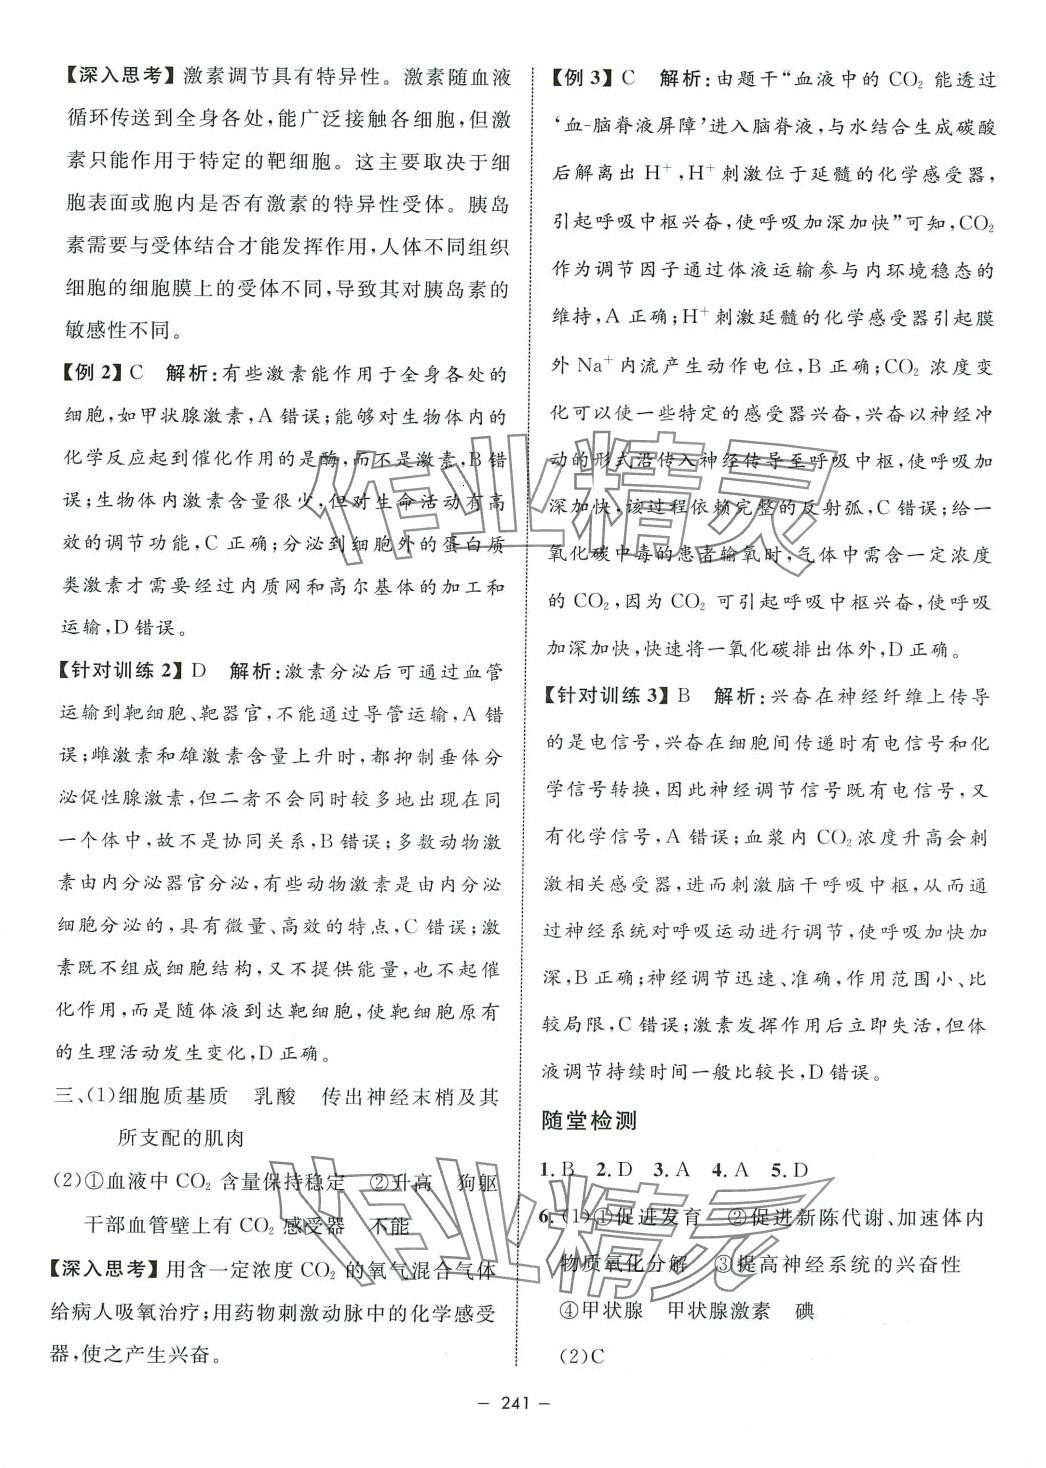 【深入思考】激素调节具有特异性。激素随血液
循环传送到全身各处,能广泛接触各细胞,但激
素只能作用于特定的靶细胞。这主要取决于细
胞表面或胞内是否有激素的特异性受体。胰岛
素需要与受体结合才能发挥作用,人体不同组织
细胞的细胞膜上的受体不同,导致其对胰岛素的
敏感性不同。
【例2】C 解析:有些激素能作用于全身各处的
细胞,如甲状腺激素,A错误;能够对生物体内的
化学反应起到催化作用的是酶,而不是激素,B错
误;生物体内激素含量很少,但对生命活动有高
效的调节功能,C正确;分泌到细胞外的蛋白质
类激素才需要经过内质网和高尔基体的加工和
运输,D错误。
【针对训练2】D 解析:激素分泌后可通过血管
运输到靶细胞、靶器官,不能通过导管运输,A错
误;雌激素和雄激素含量上升时,都抑制垂体分
泌促性腺激素,但二者不会同时较多地出现在同
一个体中,故不是协同关系,B错误;多数动物激
素由内分泌器官分泌,有些动物激素是由内分泌
细胞分泌的,具有微量、高效的特点,C错误;激
素既不组成细胞结构,又不提供能量,也不起催
化作用,而是随体液到达靶细胞,使靶细胞原有
的生理活动发生变化,D正确。
三、(1)细胞质基质 乳酸 传出神经末梢及其
所支配的肌肉
(2)①血液中CO₂含量保持稳定 ②升高 狗躯
干部血管壁上有CO₂感受器 不能
【深入思考】用含一定浓度CO₂的氧气混合气体
给病人吸氧治疗;用药物刺激动脉中的化学感受
器,使之产生兴奋。
【例3】C 解析:由题干“血液中的CO₂能透过
‘血-脑脊液屏障’进入脑脊液,与水结合生成碳酸
后解离出H⁺,H⁺刺激位于延髓的化学感受器,
引起呼吸中枢兴奋,使呼吸加深加快”可知,CO₂
作为调节因子通过体液运输参与内环境稳态的
维持,A正确;H⁺刺激延髓的化学感受器引起膜
外Na⁺内流产生动作电位,B正确;CO₂浓度变
化可以使一些特定的感受器兴奋,兴奋以神经冲
动的形式沿传入神经传导至呼吸中枢,使呼吸加
深加快,该过程依赖完整的反射弧,C错误;给一
氧化碳中毒的患者输氧时,气体中需含一定浓度
的CO₂,因为CO₂可引起呼吸中枢兴奋,使呼吸
加深加快,快速将一氧化碳排出体外,D正确。
【针对训练3】B 解析:兴奋在神经纤维上传导
的是电信号,兴奋在细胞间传递时有电信号和化
学信号转换,因此神经调节信号既有电信号,又
有化学信号,A错误;血浆内CO₂浓度升高会刺
激相关感受器,进而刺激脑干呼吸中枢,从而通
过神经系统对呼吸运动进行调节,使呼吸加快加
深,B正确;神经调节迅速、准确,作用范围小、比
较局限,C错误;激素发挥作用后立即失活,但体
液调节持续时间一般比较长,D错误。
随堂检测
1. B 2. D 3. A 4. A 5. D
6. (1)①促进发育 ②促进新陈代谢、加速体内
物质氧化分解 ③提高神经系统的兴奋性
④甲状腺 甲状腺激素 碘
(2)C
作业精灵
作业精灵
– 241 –